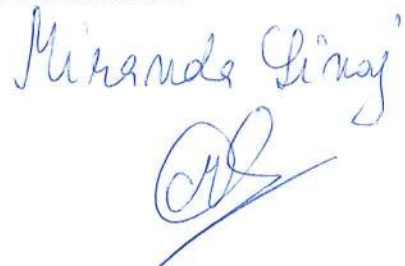 Miranda Sinaj